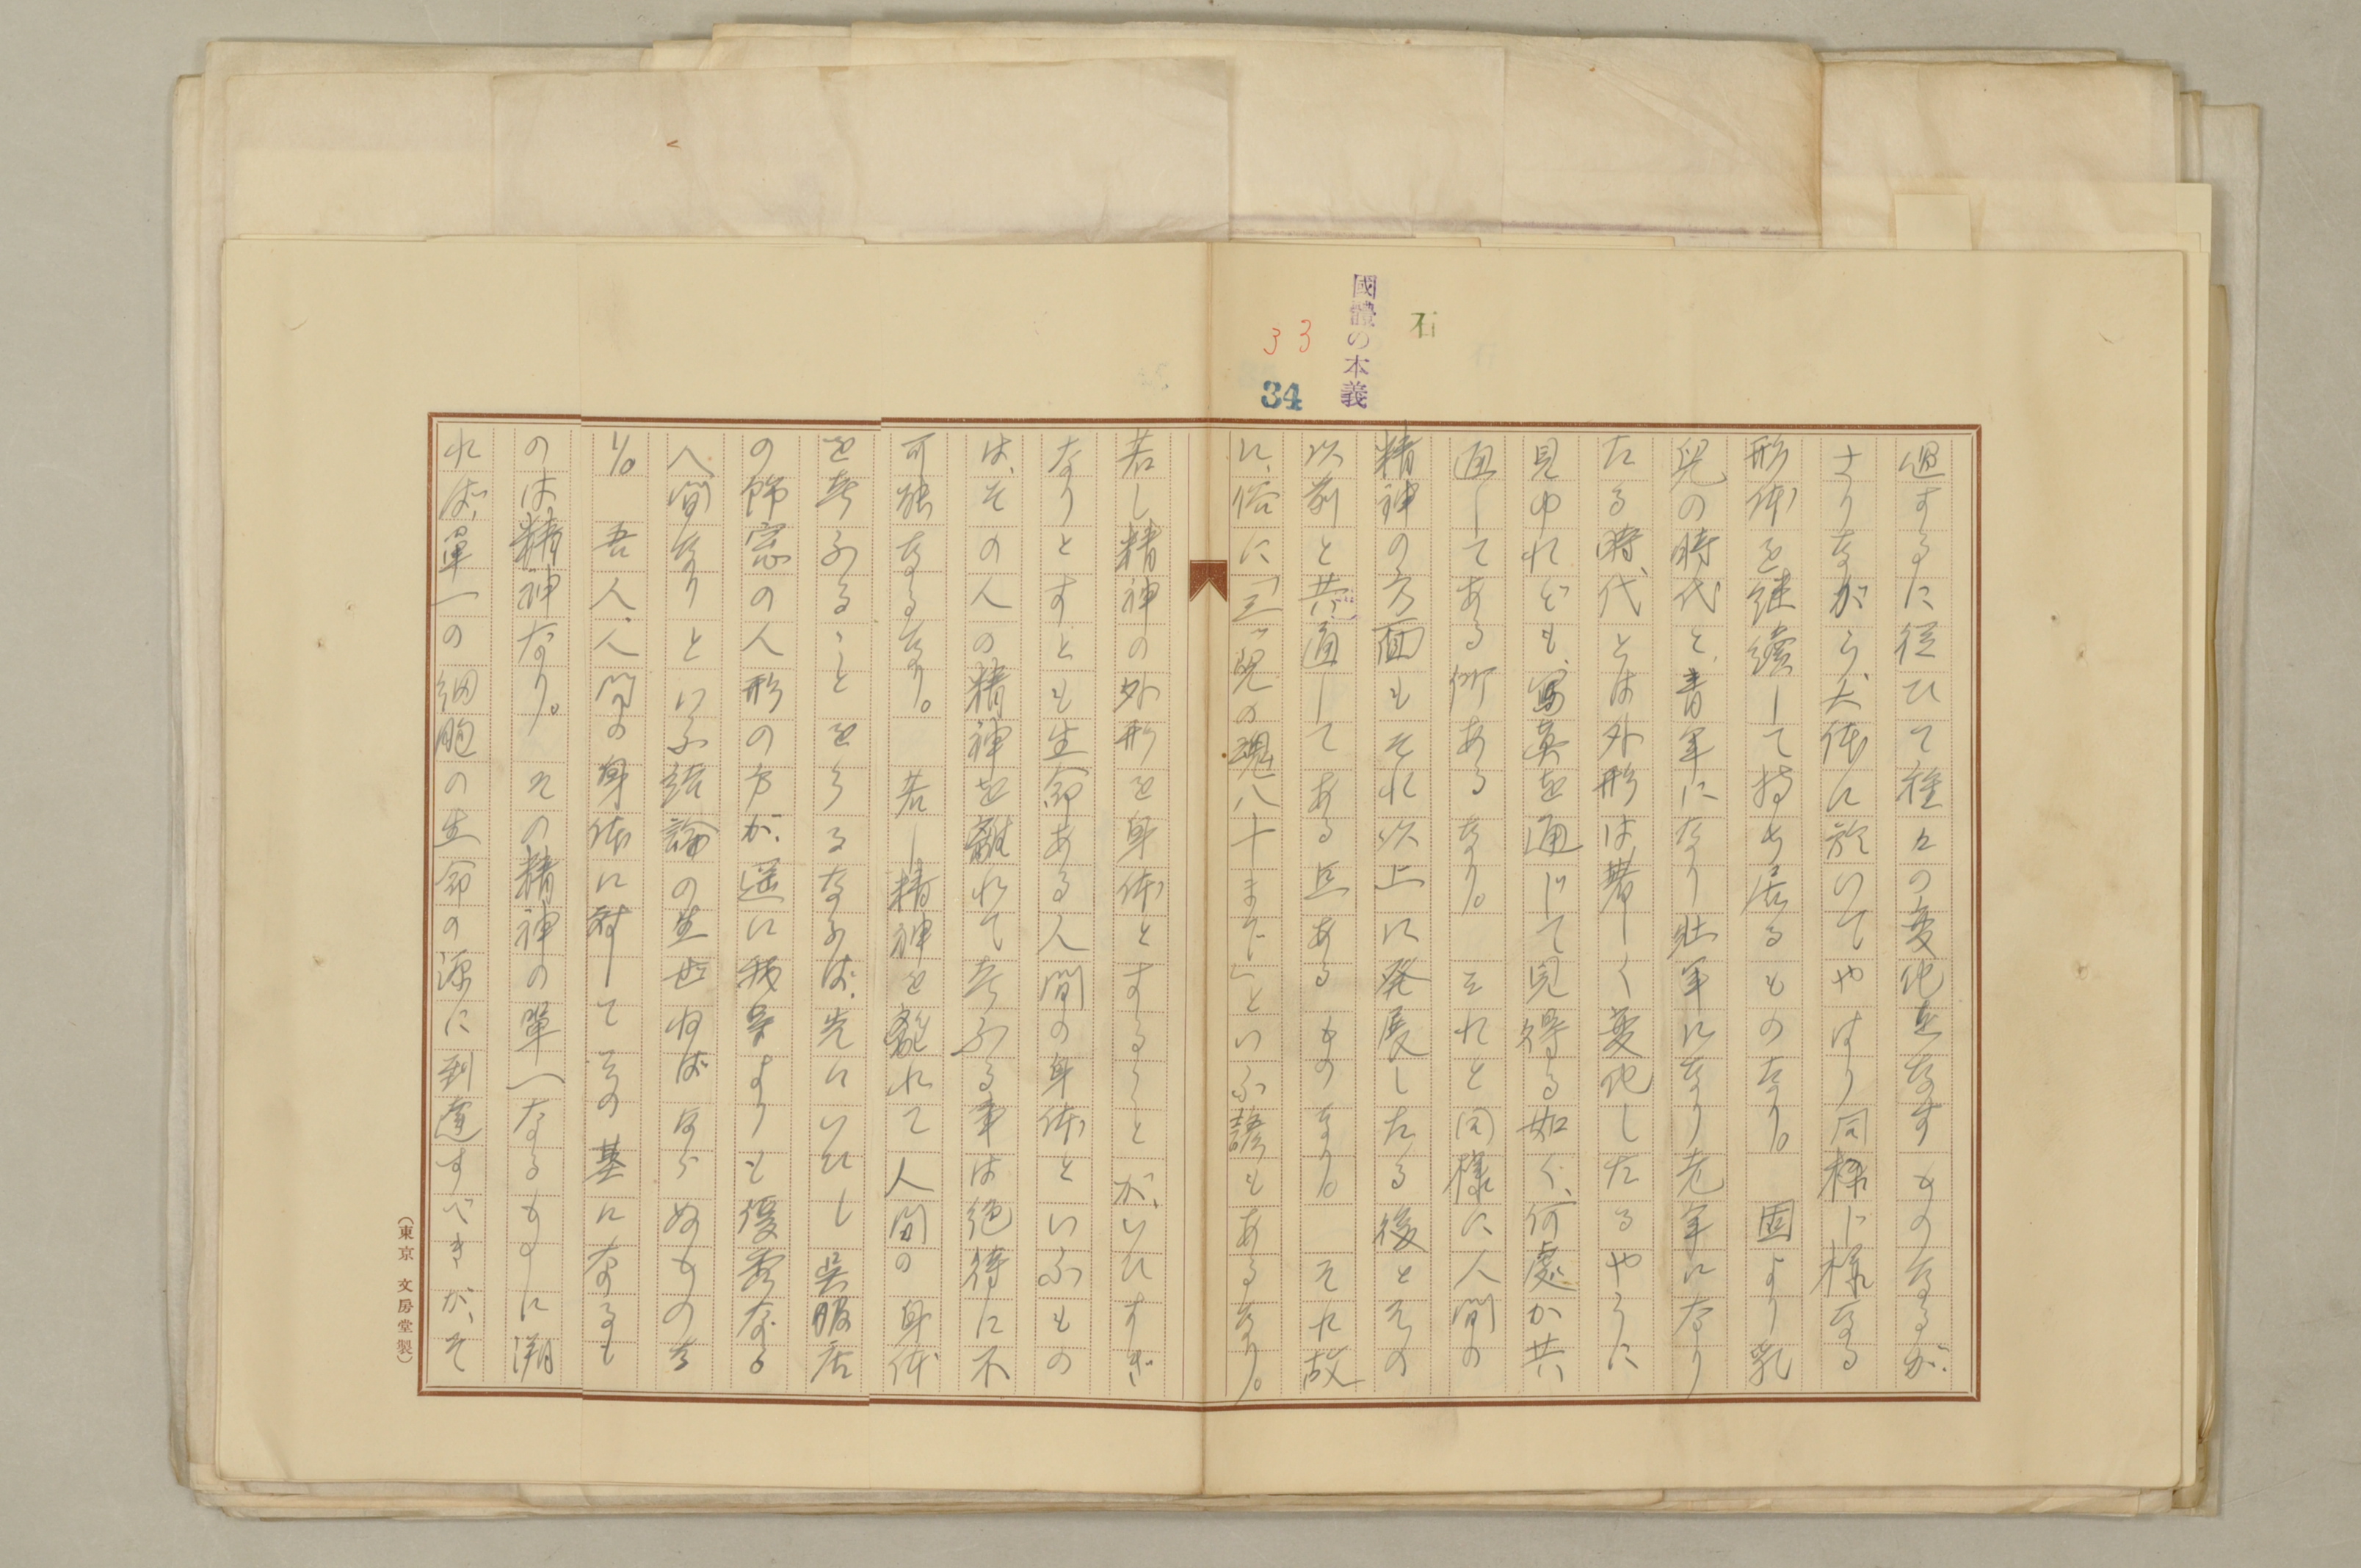 國體の本義
石
33
34
過するに従ひて種々の変化をなすものなるが、
さりながら、大体に於いてやはり同様に様なる
形体を継續して持ち居るものなり。固より乳
児の時代と、青年になり壮年になり老年になり
たる時代とは外形は著しく変化したるやうに
見ゆれども、写真を通じて見得る如く、何處か共
通してある所あるなり。それと同様に人間の
精神の方面もそれ以上に発展したる後とその
以前と共通してある点あるものなり。それ故
に、俗に「三ツ児の魂八十まで」といふ諺もあるなり。
若し精神の外形を身体とするうことが、いひすぎ
なりとすとも生命ある人間の身体といふもの
は、その人の精神を離れて考ふる事は絶待に不
可能なるなり。若し精神を離れて人間の身体
を考ふることをうるなみば、先にいひし呉服店
の飾窓の人形の方が、遥に我等よりも優秀なる
人間なりといふ結論の生世ねばならぬものな
り。吾人、人間の身体に対してその基になるも
のは精神なり。その精神の單一なるものに溯
れば、單一の細胞の生命の源に到達すべきが、そ
(東京 文房堂製)